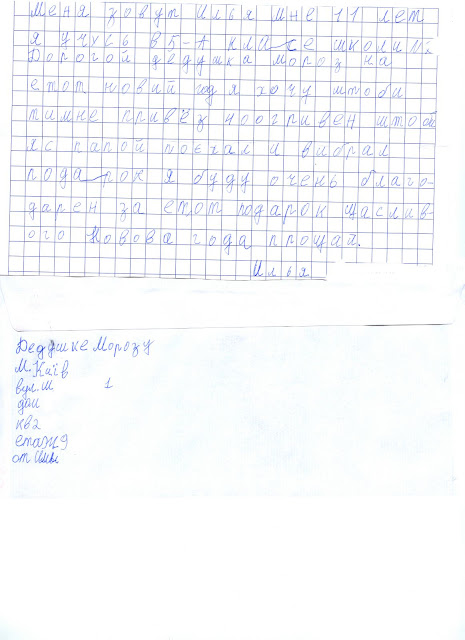 Меня зовут Илья мне 11 лет
я учусь в 5-А класе школи
Дорогой дедушка мороз на
етот новий год я хочу штоби
ти мне привёз 400 гривен штоб
я с папой поєхал и вибрал
подарок я буду очень благо-
дарен за етот подарок щаслив-
ого Нового года прощай.
Илья
Дедушке Морозу
М. Київ
вул. М 1
дом
кв 2
етаж 9
от Ильи